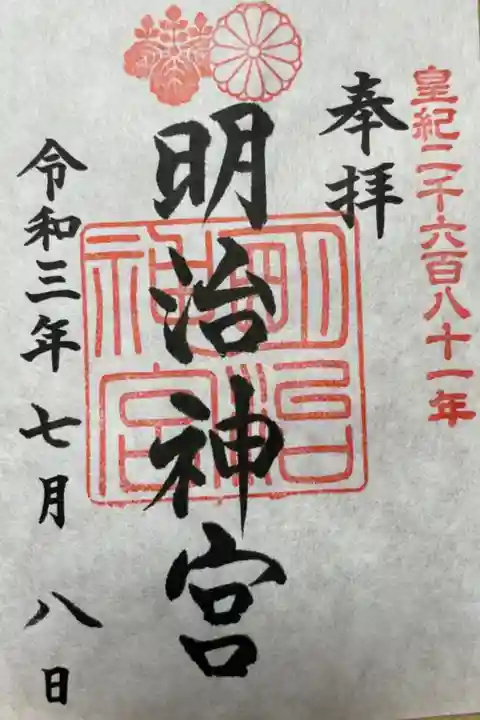 皇紀二千六百八十一年
奉拝
明治神宮
明治
神宮
令和三年七月八日